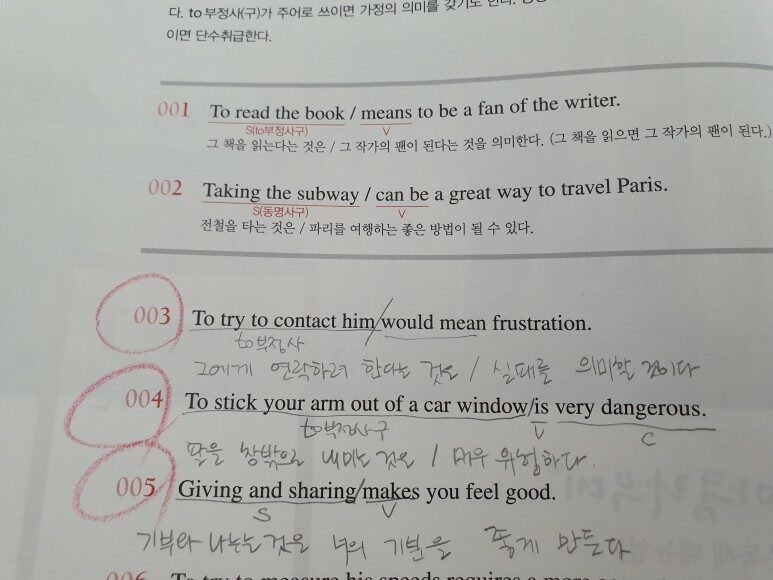 다. to부정사(구)가 주어로 쓰이면 가정의 의미를 갖기도 한다.
이면 단수취급한다.
001 To read the book / means to be a fan of the writer.
S(to부정사구) V
그 책을 읽는다는 것은 / 그 작가의 팬이 된다는 것을 의미한다. (그 책을 읽으면 그 작가의 팬이 된다.)
002 Taking the subway / can be a great way to travel Paris.
S(동명사구) V
전철을 타는 것은 / 파리를 여행하는 좋은 방법이 될 수 있다.
003 To try to contact him/would mean frustration.
to부정사
그에게 연락하려 한다는 것은 / 실패를 의미할 것이다
004 To stick your arm out of a car window/is very dangerous.
to부정사구 V C
팔을 창밖으로 내미는 것은 / 매우 위험하다.
005 Giving and sharing/makes you feel good.
S V
기부와 나누는 것은 너의 기분을 좋게 만든다
006 To try to measure his speeds requires a more